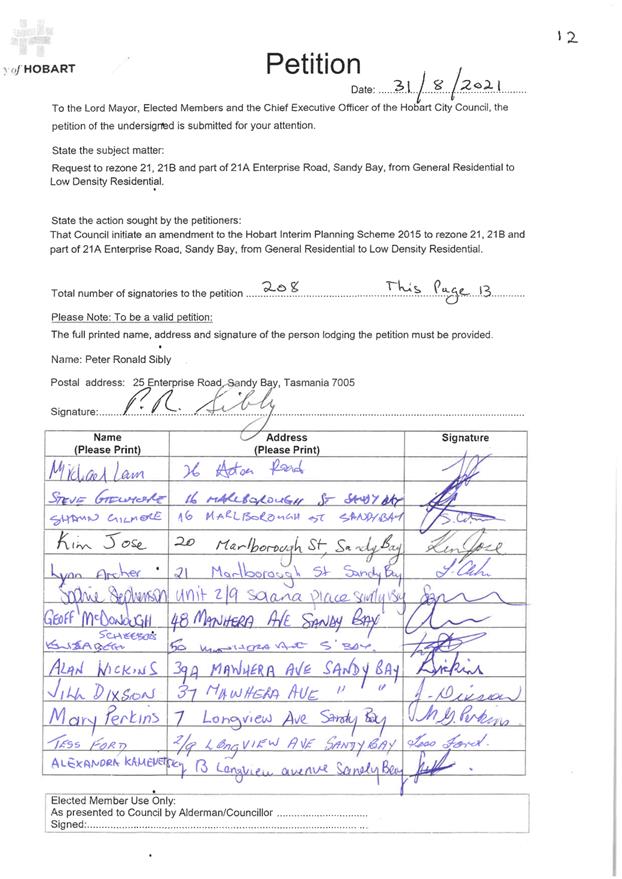 12
y of HOBART
Petition
Date: 31/8/2021
To the Lord Mayor, Elected Members and the Chief Executive Officer of the Hobart City Council, the
petition of the undersigned is submitted for your attention.
State the subject matter:
Request to rezone 21, 21B and part of 21A Enterprise Road, Sandy Bay, from General Residential to
Low Density Residential.
State the action sought by the petitioners:
That Council initiate an amendment to the Hobart Interim Planning Scheme 2015 to rezone 21, 21B and
part of 21A Enterprise Road, Sandy Bay, from General Residential to Low Density Residential.
Total number of signatories to the petition 208 This Page 13
Please Note: To be a valid petition:
The full printed name, address and signature of the person lodging the petition must be provided.
Name: Peter Ronald Sibly
Postal address: 25 Enterprise Road, Sandy Bay, Tasmania 7005
Signature: P.R. Sibly
Name Address Signature
(Please Print) (Please Print)
Michael Lam 26 Road
STEVE 16 MARLBOROUGH St SANDY BAY
SHAWN GILMORE 16 MARLBOROUGH ST SANDY BAY
Kim Jose 20 Marlborough St, Sandy Bay Kim Jose
Lynn Archer 21 Marlborough St Sandy Bay
Sophie Stephenson Unit 2/9 Place Sandy Bay
GEOFF McDONOUGH 48 MAWHERA AVE SANDY BAY
50 AVE S' BAY.
ALAN WICKINS 39A MAWHERA AVE SANDY BAY
JILL DIXSON 37 MAWHERA AVE " " J. Dixson
Mary Perkins 7 Longview Ave Sandy Bay Perkins
TESS FORD 2/9 LONGVIEW AVE SANDY BAY Tess Ford.
ALEXANDRA 13 Longview avenue Sandy Bay
Elected Member Use Only:
As presented to Council by Alderman/Councillor
Signed: